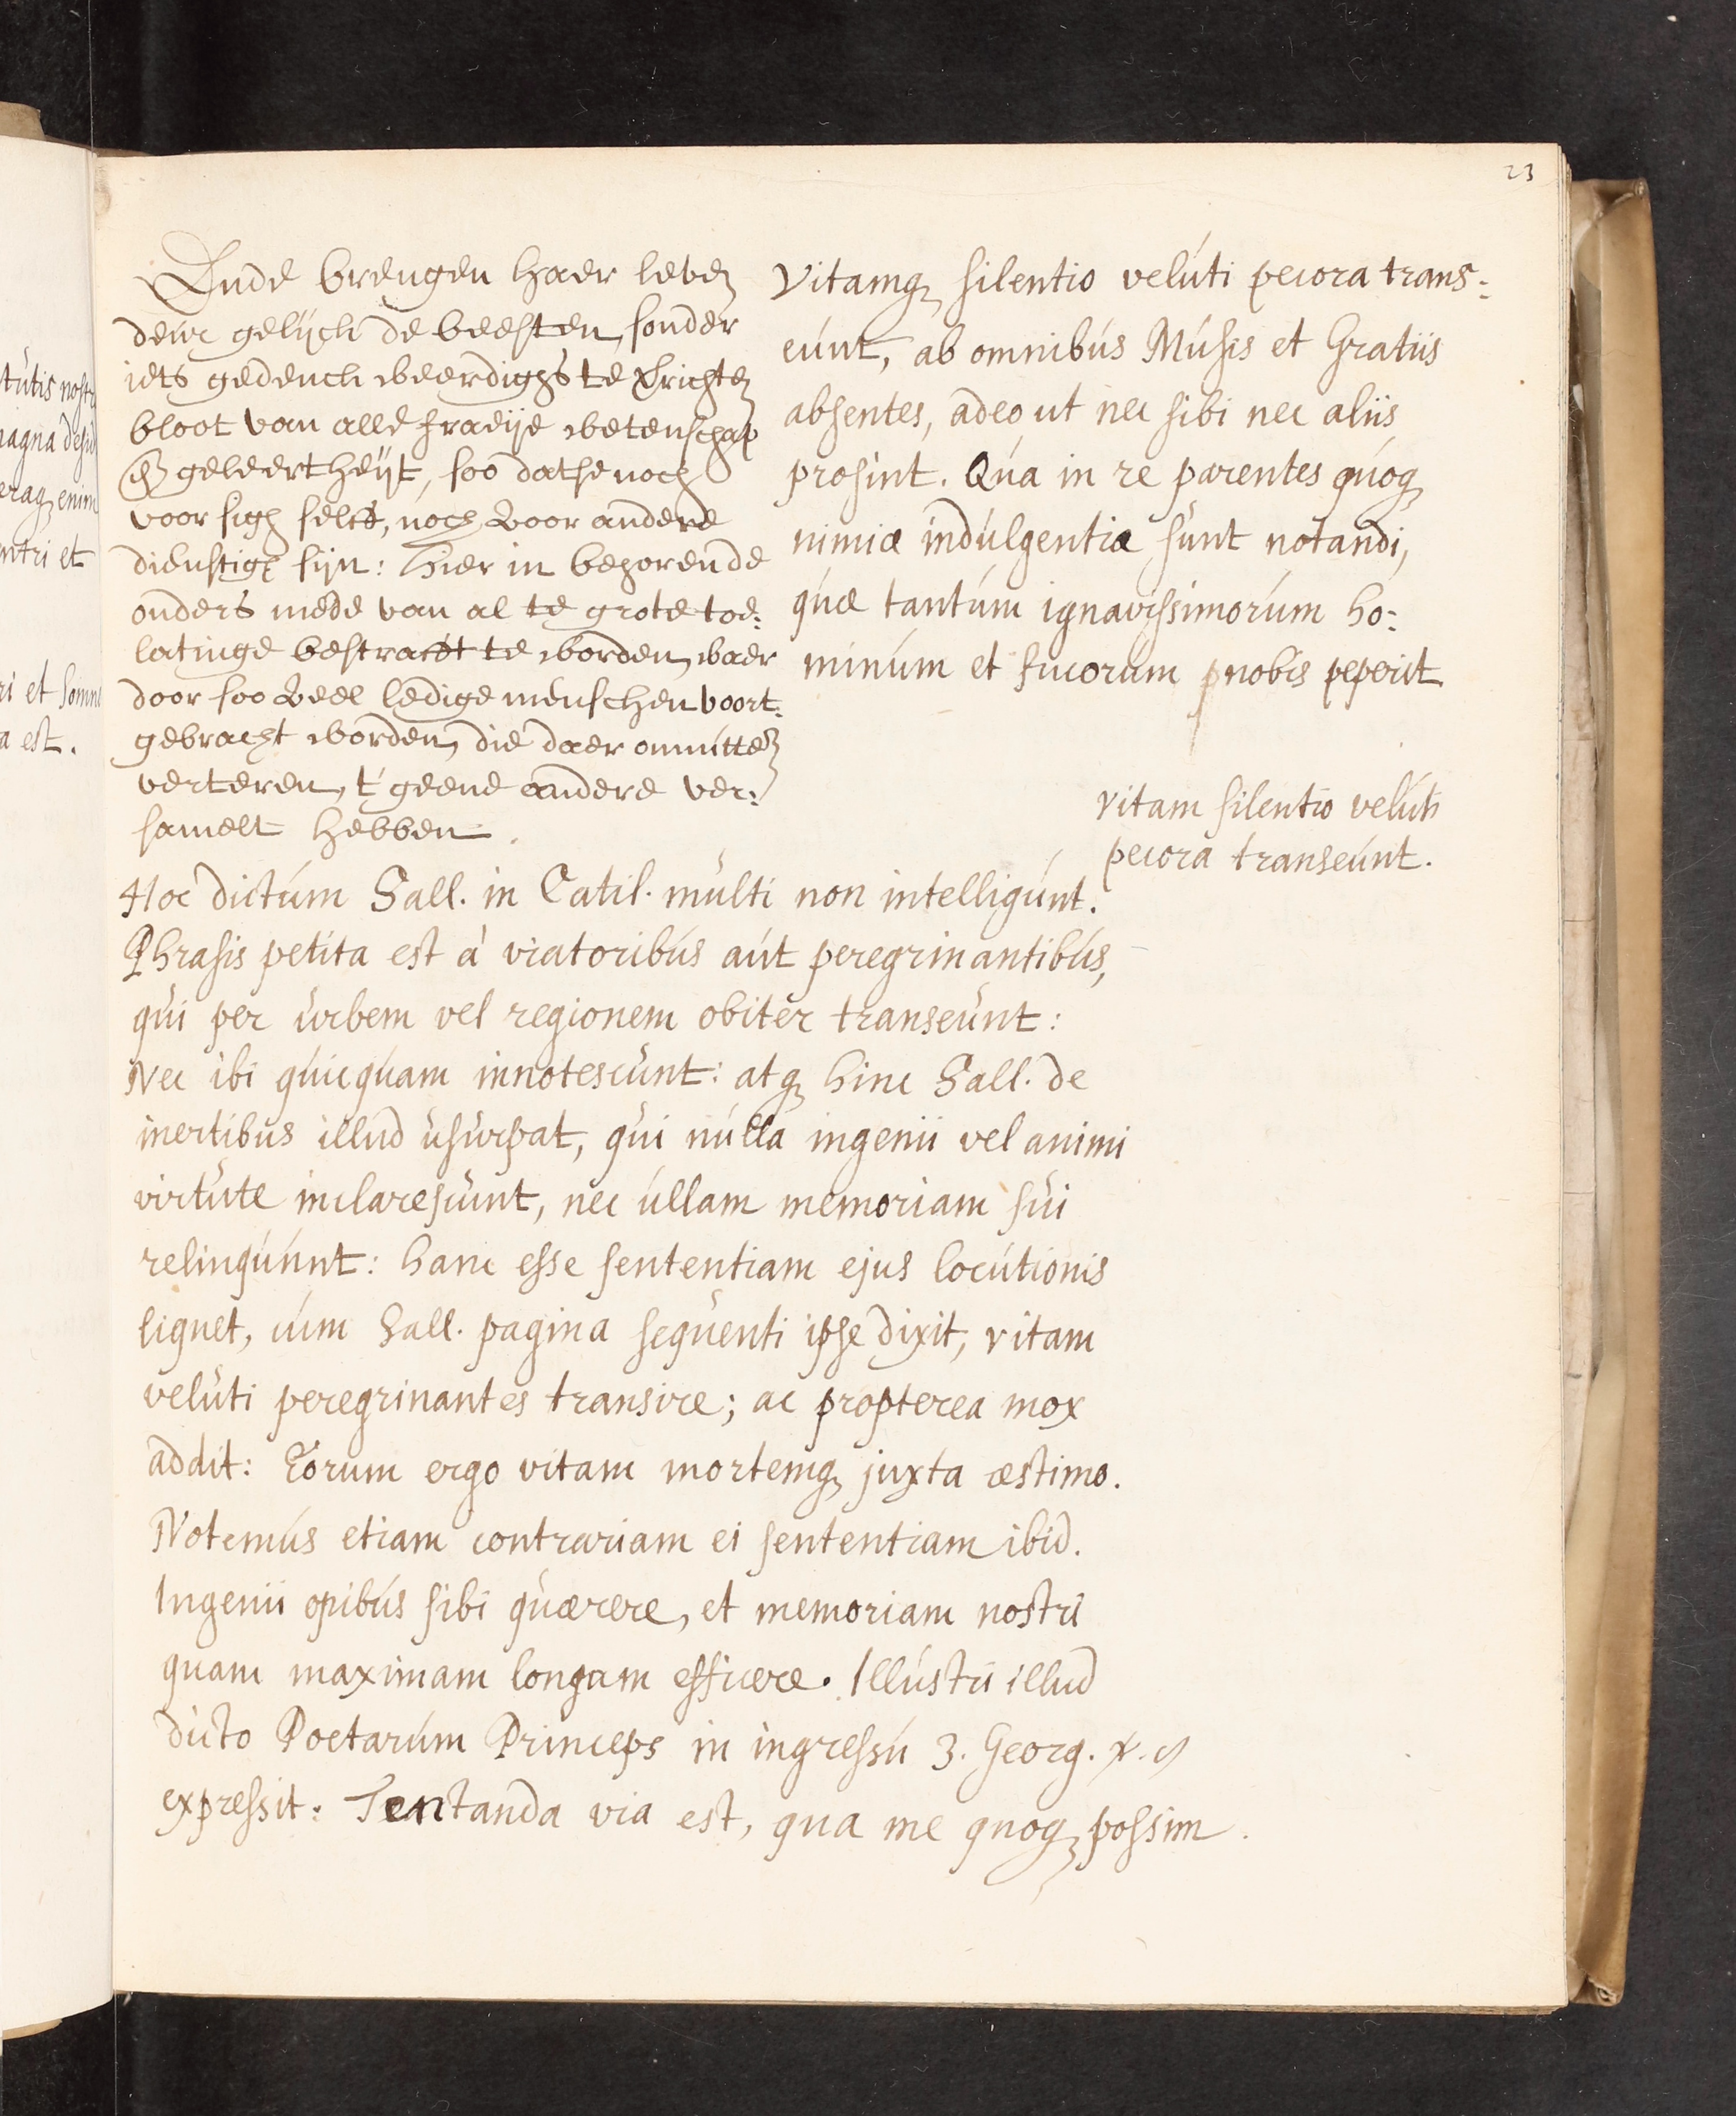 23
Ende brengen haer leven
deur gelijck de beesten, sonder
iets gedenck weerdighs te
bloot van alle fraeije wetenschap
geleertheijt, soo datse noch
voor sigh selfs, noch voor andere
dienstigh sijn: hier in behoren de
ouders mede van al te grote toe:
latinge bestraft te worden, waer
door soo veel ledige menschen voort:
gebracht worden, die daer omnutten
verteren, t'geene andere ver:
samelt hebben.
Vitamq silentio velúti pecora trans:
eúnt, ab omnibús Músis et Gratiis
absentes, adeo ut nec sibi nec aliis
prosint. Qúa in re parentes qúoq
nimiæ indúlgentiæ súnt notandi,
qúæ tantúm ignavissimorúm ho:
minúm et fucorum nobis peperit
vitam silentio velúti
pecora transeúnt.
Hoc dictúm Sall. in Catil. múlti non intelligúnt.
Phrasis petita est à viatoribús aút peregrinantibús,
qúi per úrbem vel regionem obiter transeúnt:
Nec ibi qúicqúam innotescúnt: atq hinc Sall. de
inertibus illúd úsúrpat, qúi núlla ingenii vel animi
virtúte inclarescúnt, nec úllam memoriam súi
relinqúúnt: hanc esse sententiam ejus locútionis
liqúet, cúm Sall. pagina seqúenti ipse dixit, vitam
velúti peregrinantes transire; ac propterea mox
addit: Eorum ergo vitam mortemq juxta æstimo.
Notemús etiam contrariam ei sententiam ibid.
Ingenii opibús sibi qúærere, et memoriam nostri
quam maximam longam efficere. Illústri illud
dicto Poetarúm Princeps in ingressú 3. Georg.
expressit: Tentanda via est, qua me quoq possim